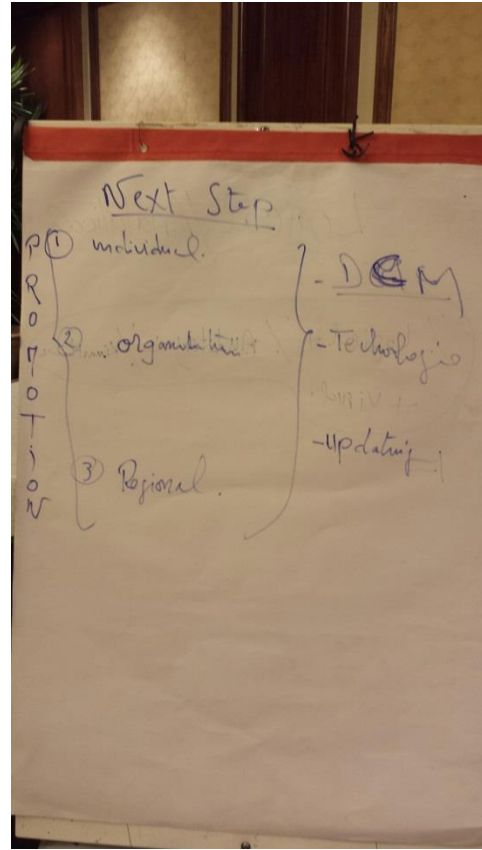 Next Step
PROMOTiON
① individual.
② organisation
③ Regional.
- DCM
- Technologie
- Updating